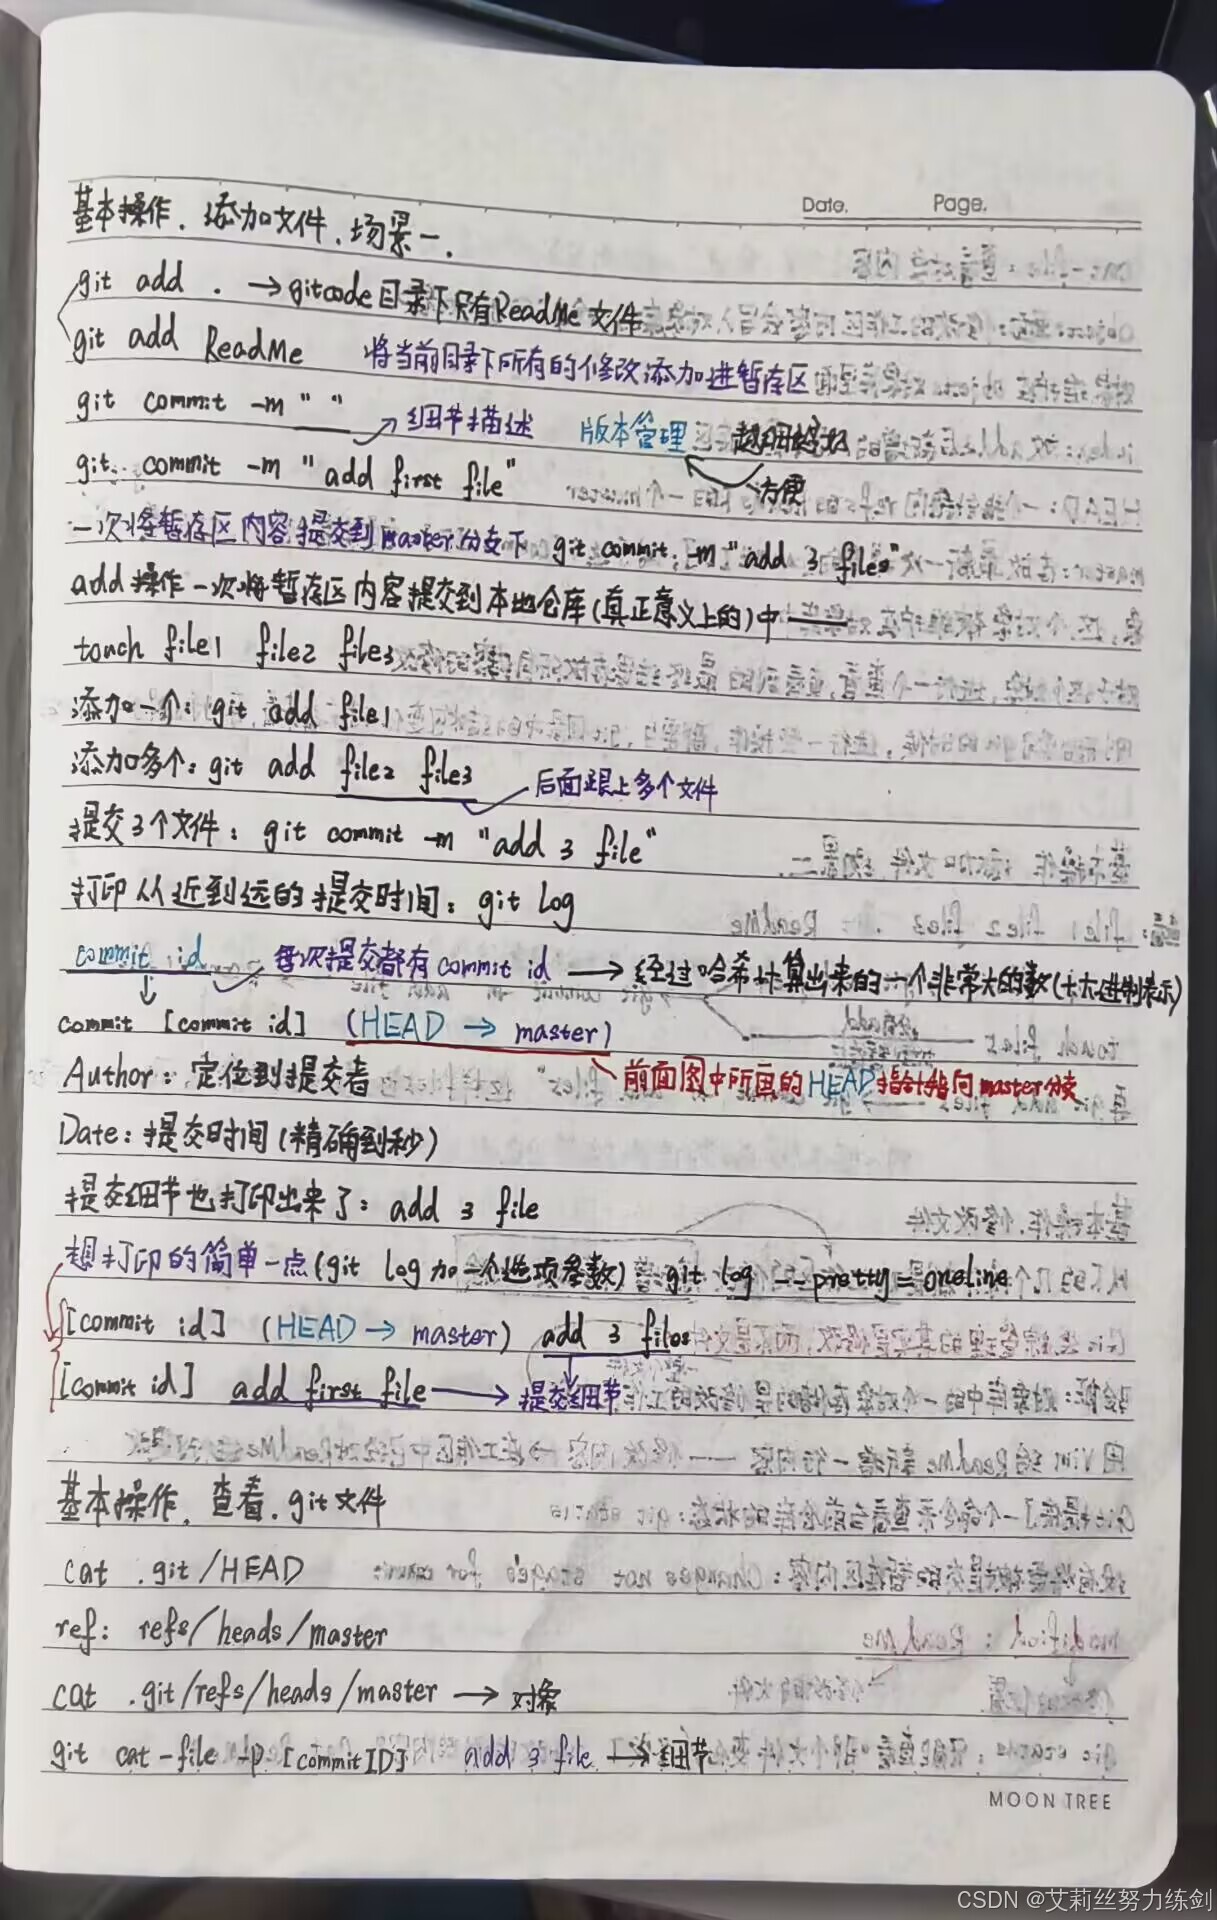 Date.
Page.
基本操作、添加文件、场景一.
git add . → gitcode目录下只有ReadMe文件
git add ReadMe 将当前目录下所有的修改添加进暂存区
git commit -m " " → 细节描述 版本管理 越细越好
方便
git commit -m "add first file"
一次将暂存区内容提交到master分支下 git commit -m "add 3 files"
add操作一次将暂存区内容提交到本地仓库(真正意义上的)中
touch file1 file2 file3
添加一个: git add file1
添加多个: git add file2 file3 后面跟上多个文件
提交3个文件: git commit -m "add 3 file"
打印从近到远的提交时间: git log
commit id 每次提交都有commit id → 经过哈希计算出来的一个非常大的数(十六进制表示)
commit [commit id] (HEAD → master)
Author: 定位到提交者 前面图中所画的HEAD指针指向master分支
Date: 提交时间(精确到秒)
提交细节也打印出来了: add 3 file
想打印的简单一点(git log加一个选项参数) git log --pretty=oneline
[commit id] (HEAD → master) add 3 files
[commit id] add first file → 提交细节
基本操作、查看.git文件
cat .git/HEAD
ref: refs/heads/master
cat .git/refs/heads/master → 对象
git cat-file -p [commitID] add 3 file → 细节
MOON TREE
CSDN @艾莉丝努力练剑